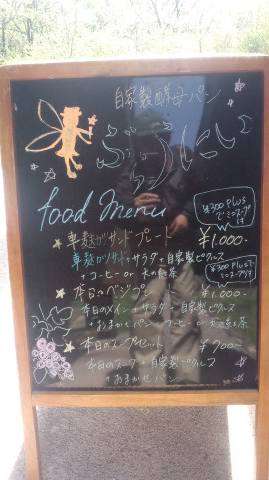 自家製酵母パン
food menu
車麩カツサンドプレート ¥1,000-
¥300 Plus
でミニスープ付
車麩カツサンド+サラダ+自家製ピクルス
+コーヒー or 大地の紅茶
¥300 Plusで
ミニスープ付
本日のベジプレート ¥1,000-
本日のメイン+サラダ+自家製ピクルス
+おまかせパン+コーヒー or 大地の紅茶
本日のスープセット ¥700-
本日のスープ+自家製ピクルス
+おまかせパン